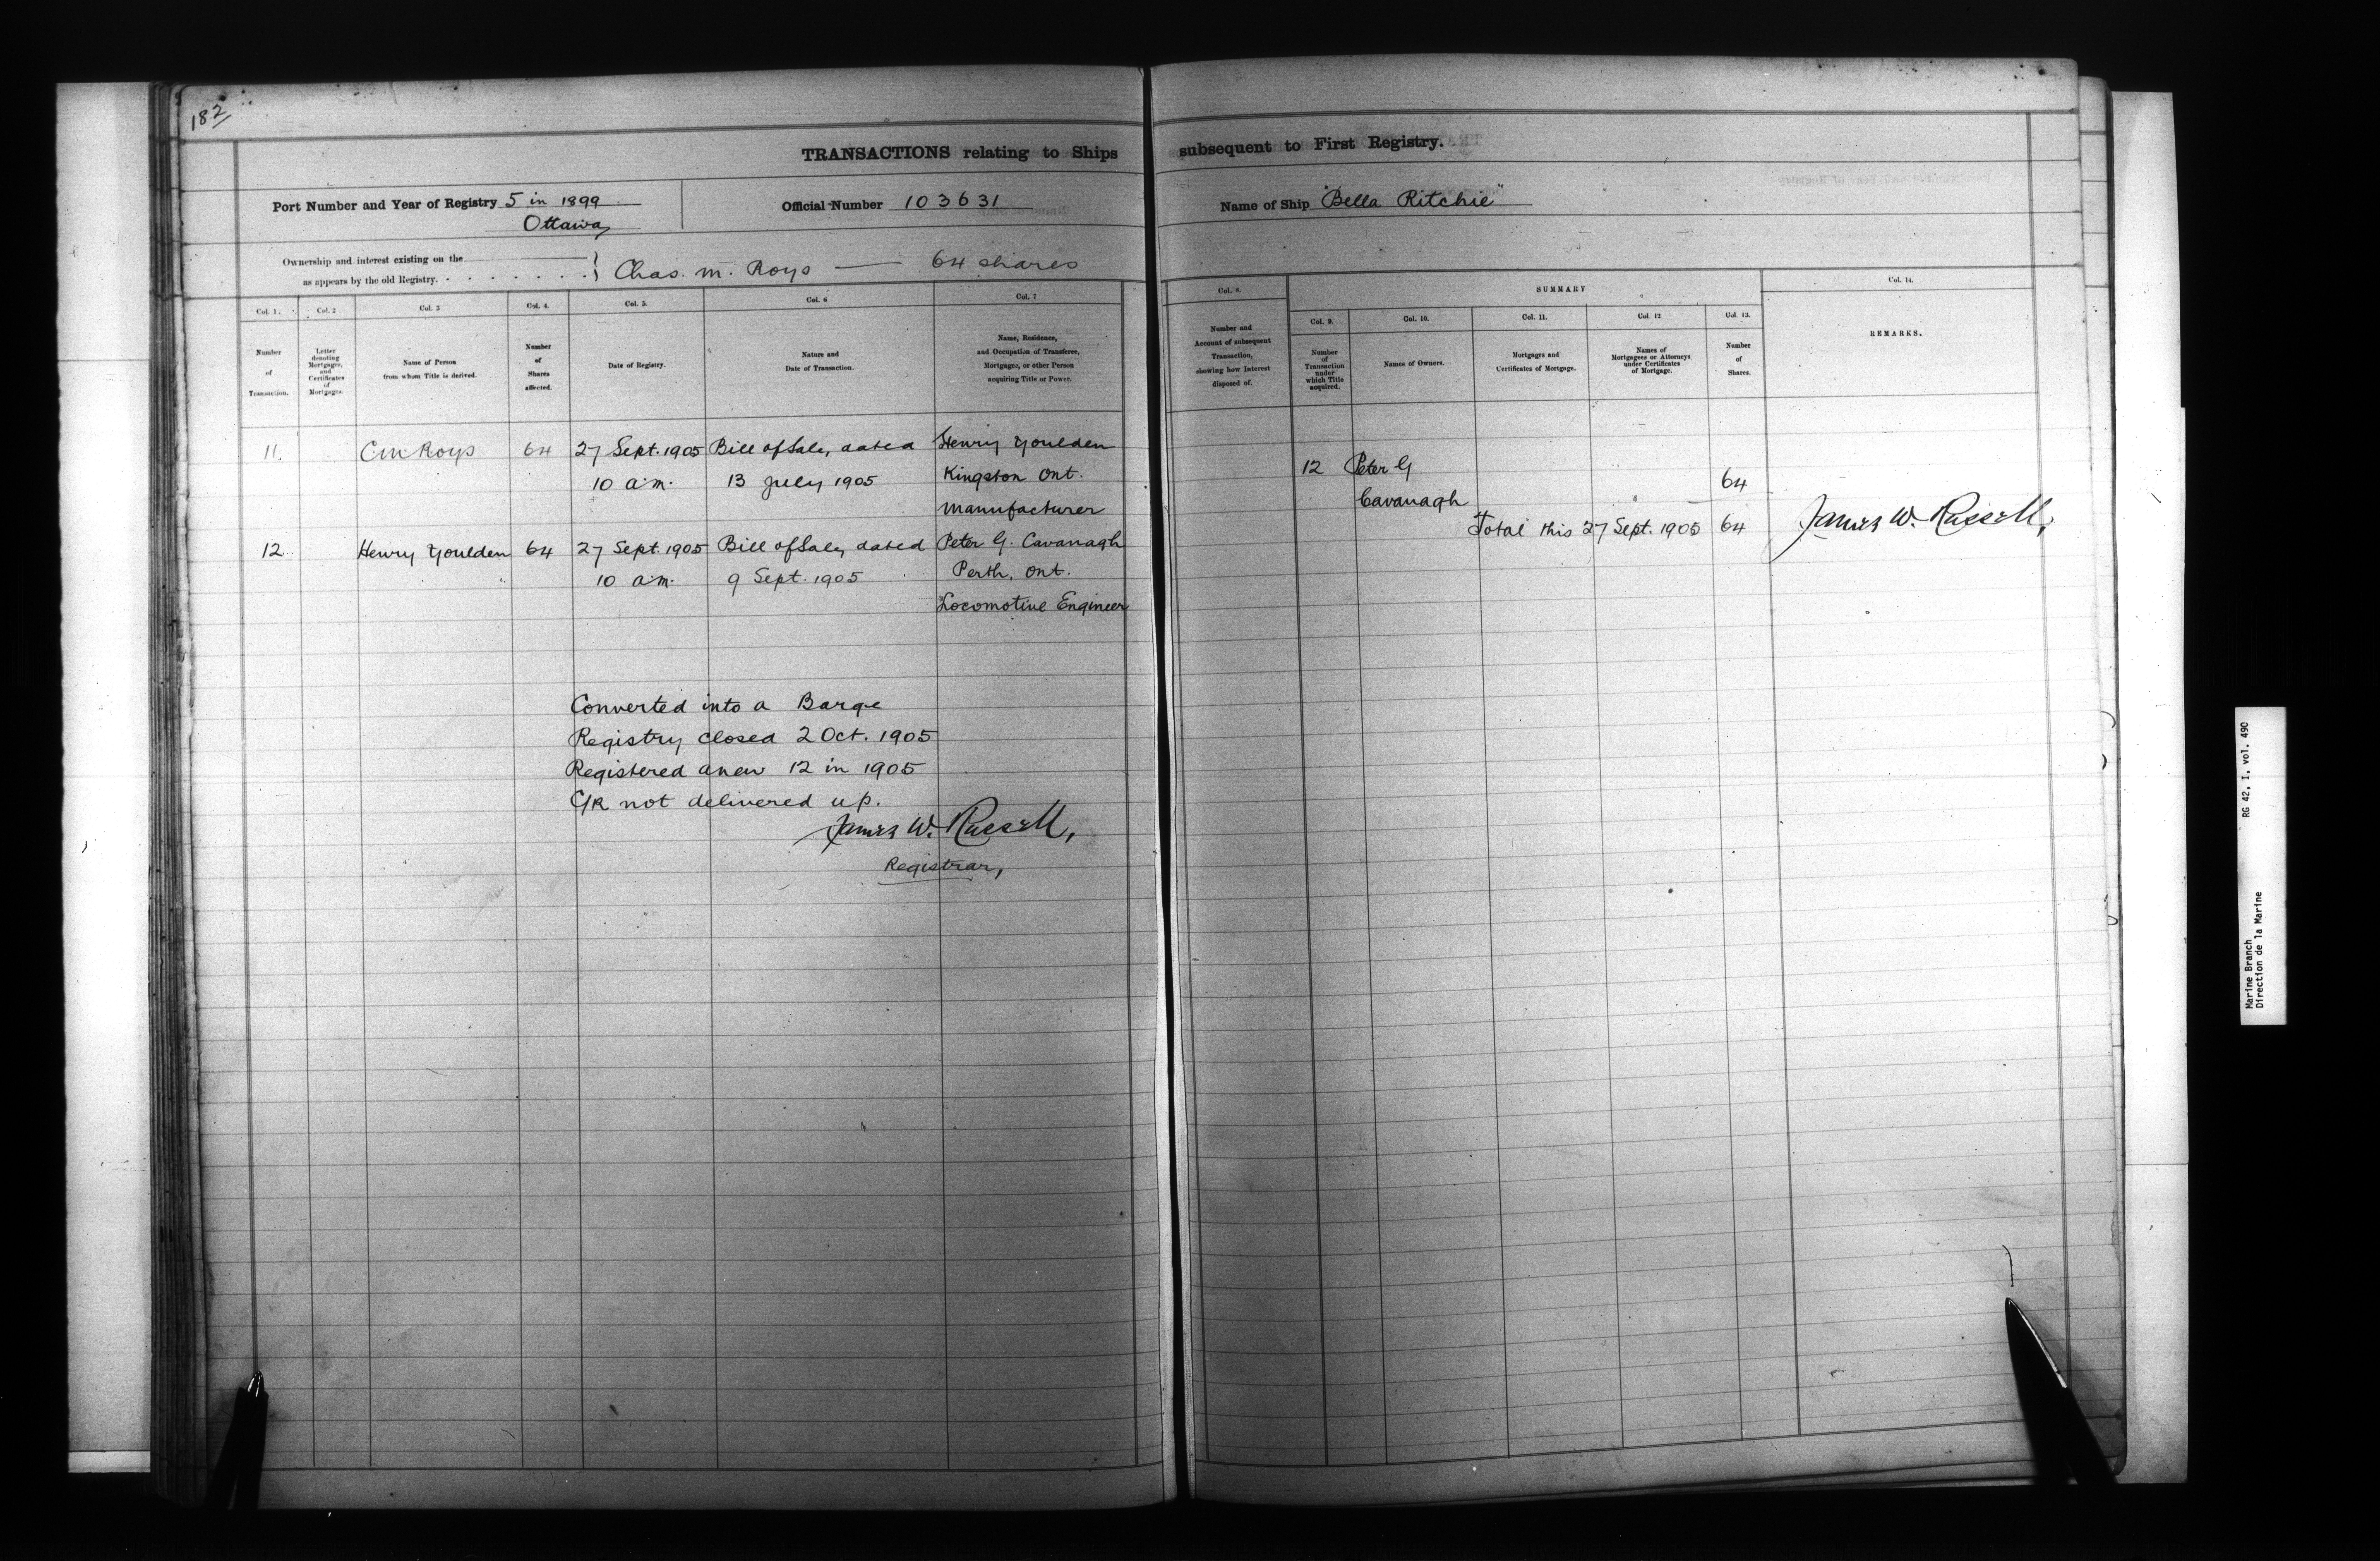 182
TRANSACTIONS relating to Ships subsequent to First Registry.
Port Number and Year of Registry 5 in 1899
Ottawa
Official Number 103631
Name of Ship "Bella Ritchie"
Ownership and interest existing on the
as appears by the old Registry. . . . . . . . } Chas. M. Roys — 64 shares
Col. 1.
Number
of
Transaction.
Col. 2
Letter
denoting
Mortgages,
and
Certificates
of
Mortgages.
Col. 3
Name of Person
from whom Title is derived.
Col. 4.
Number
of
Shares
affected.
Col. 5.
Date of Registry.
Col. 6
Nature and
Date of Transaction.
Col. 7
Name, Residence,
and Occupation of Transferee,
Mortgagee, or other Person
acquiring Title or Power.
Col. 8.
Number and
Account of subsequent
Transaction,
showing how Interest
disposed of.
SUMMARY
Col. 9.
Number
of
Transaction
under
which Title
acquired.
Col. 10.
Names of Owners.
Col. 11.
Mortgages and
Certificates of Mortgage.
Col. 12
Names of
Mortgagees or Attorneys
under Certificates
of Mortgage.
Col. 13.
Number
of
Shares.
Col. 14.
REMARKS.
11. C M Roys 64 27 Sept. 1905 Bill of Sale, dated Henry Youlden
10 a.m. 13 July 1905 Kingston Ont.
Manufacturer
12 Henry Youlden 64 27 Sept. 1905 Bill of Sale, dated Peter G. Cavanagh
10 a.m. 9 Sept. 1905 Perth, Ont.
Locomotive Engineer
12 Peter G
Cavanagh 64
Total this 27 Sept. 1905 64 James W. Russell,
Converted into a Barge
Registry closed 2 Oct. 1905
Registered anew 12 in 1905
C/R not delivered up.
James W. Russell,
Registrar,
Marine Branch RG 42, I, vol. 490
Direction de la Marine